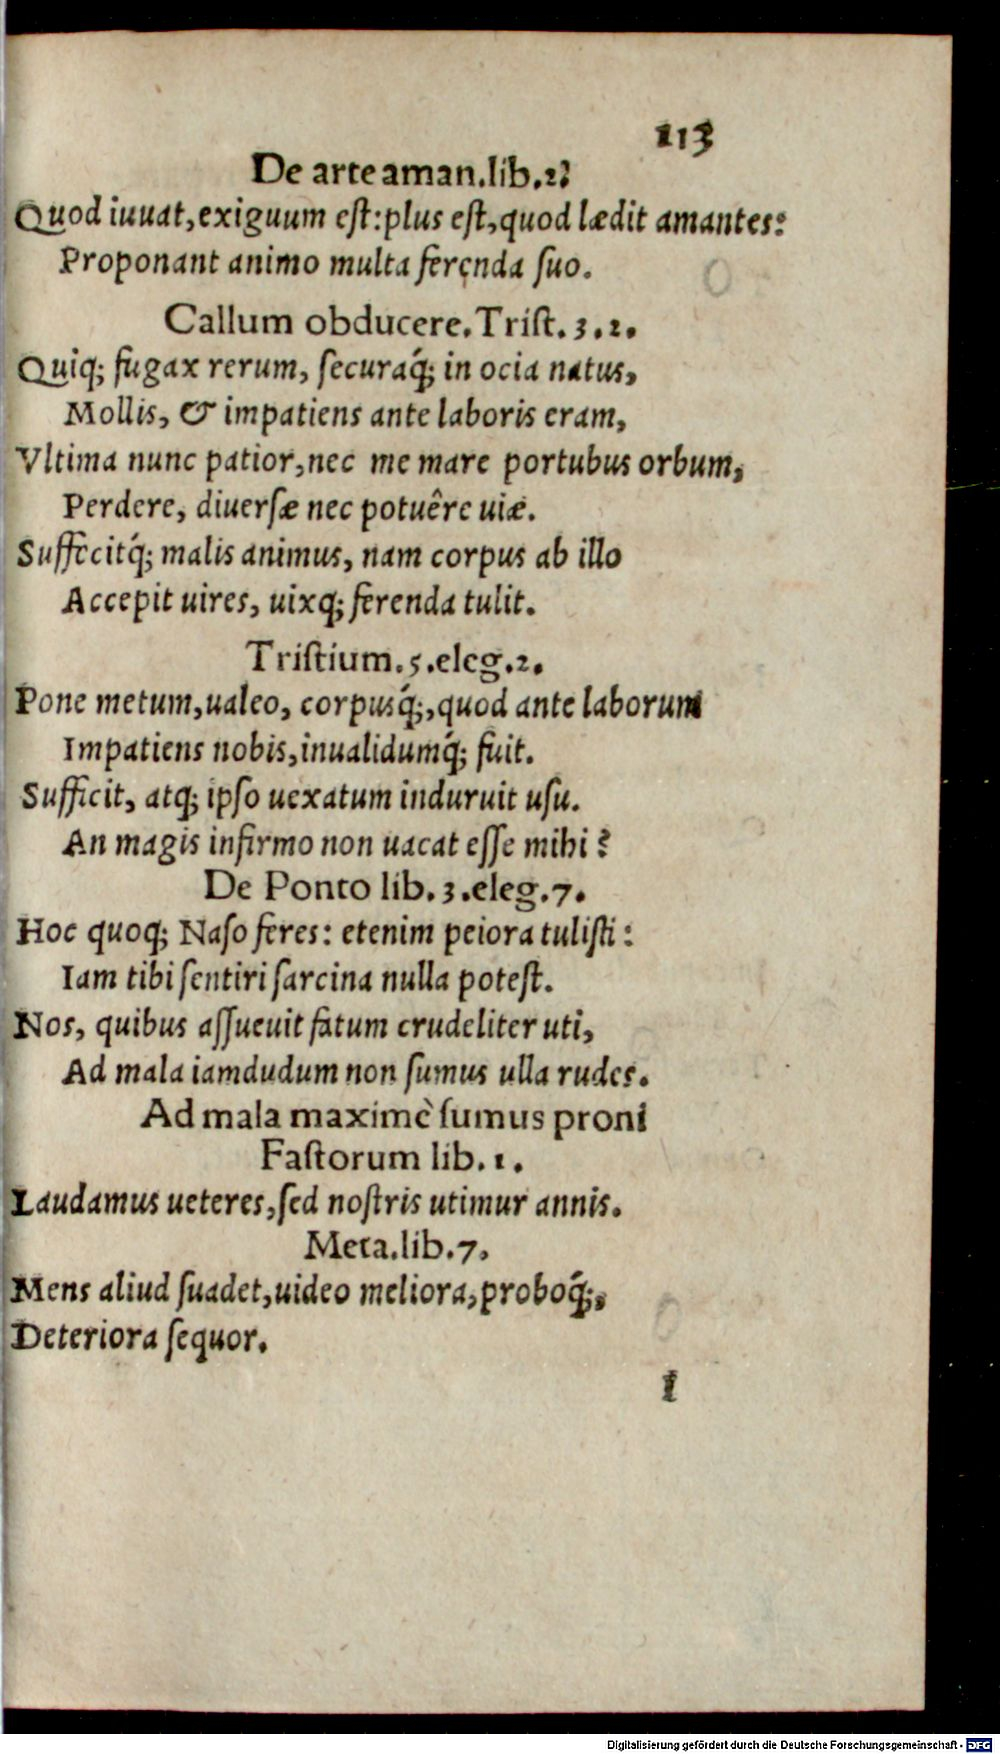 113
De arte aman.lib.2?
Quod iuuat,exiguum eſt:plus eſt,quod lædit amantes:
Proponant animo multa ferenda ſuo.
Callum obducere.Triſt.3.2.
Quiq; fugax rerum, ſecuraq́; in ocia natus,
Mollis, & impatiens ante laboris eram,
Vltima nunc patior,nec me mare portubus orbum,
Perdere, diuerſæ nec potuêre uiæ.
Suffecitq́; malis animus, nam corpus ab illo
Accepit uires, uixq; ferenda tulit.
Triſtium.5.eleg.2.
Pone metum,ualeo, corpusq́;,quod ante laborum
Impatiens nobis,inualidumq́; fuit.
Sufficit, atq; ipſo uexatum induruit uſu.
An magis infirmo non uacat eſſe mihi?
De Ponto lib.3.eleg.7.
Hoc quoq; Naſo feres: etenim peiora tuliſti:
Iam tibi ſentiri ſarcina nulla poteſt.
Nos, quibus aſſueuit fatum crudeliter uti,
Ad mala iamdudum non ſumus ulla rudes.
Ad mala maximè ſumus proni
Faſtorum lib.1.
Laudamus ueteres,ſed noſtris utimur annis.
Meta.lib.7.
Mens aliud ſuadet,uideo meliora,proboq́;,
Deteriora ſequor.
Digitalisierung gefördert durch die Deutsche Forschungsgemeinschaft - DFG